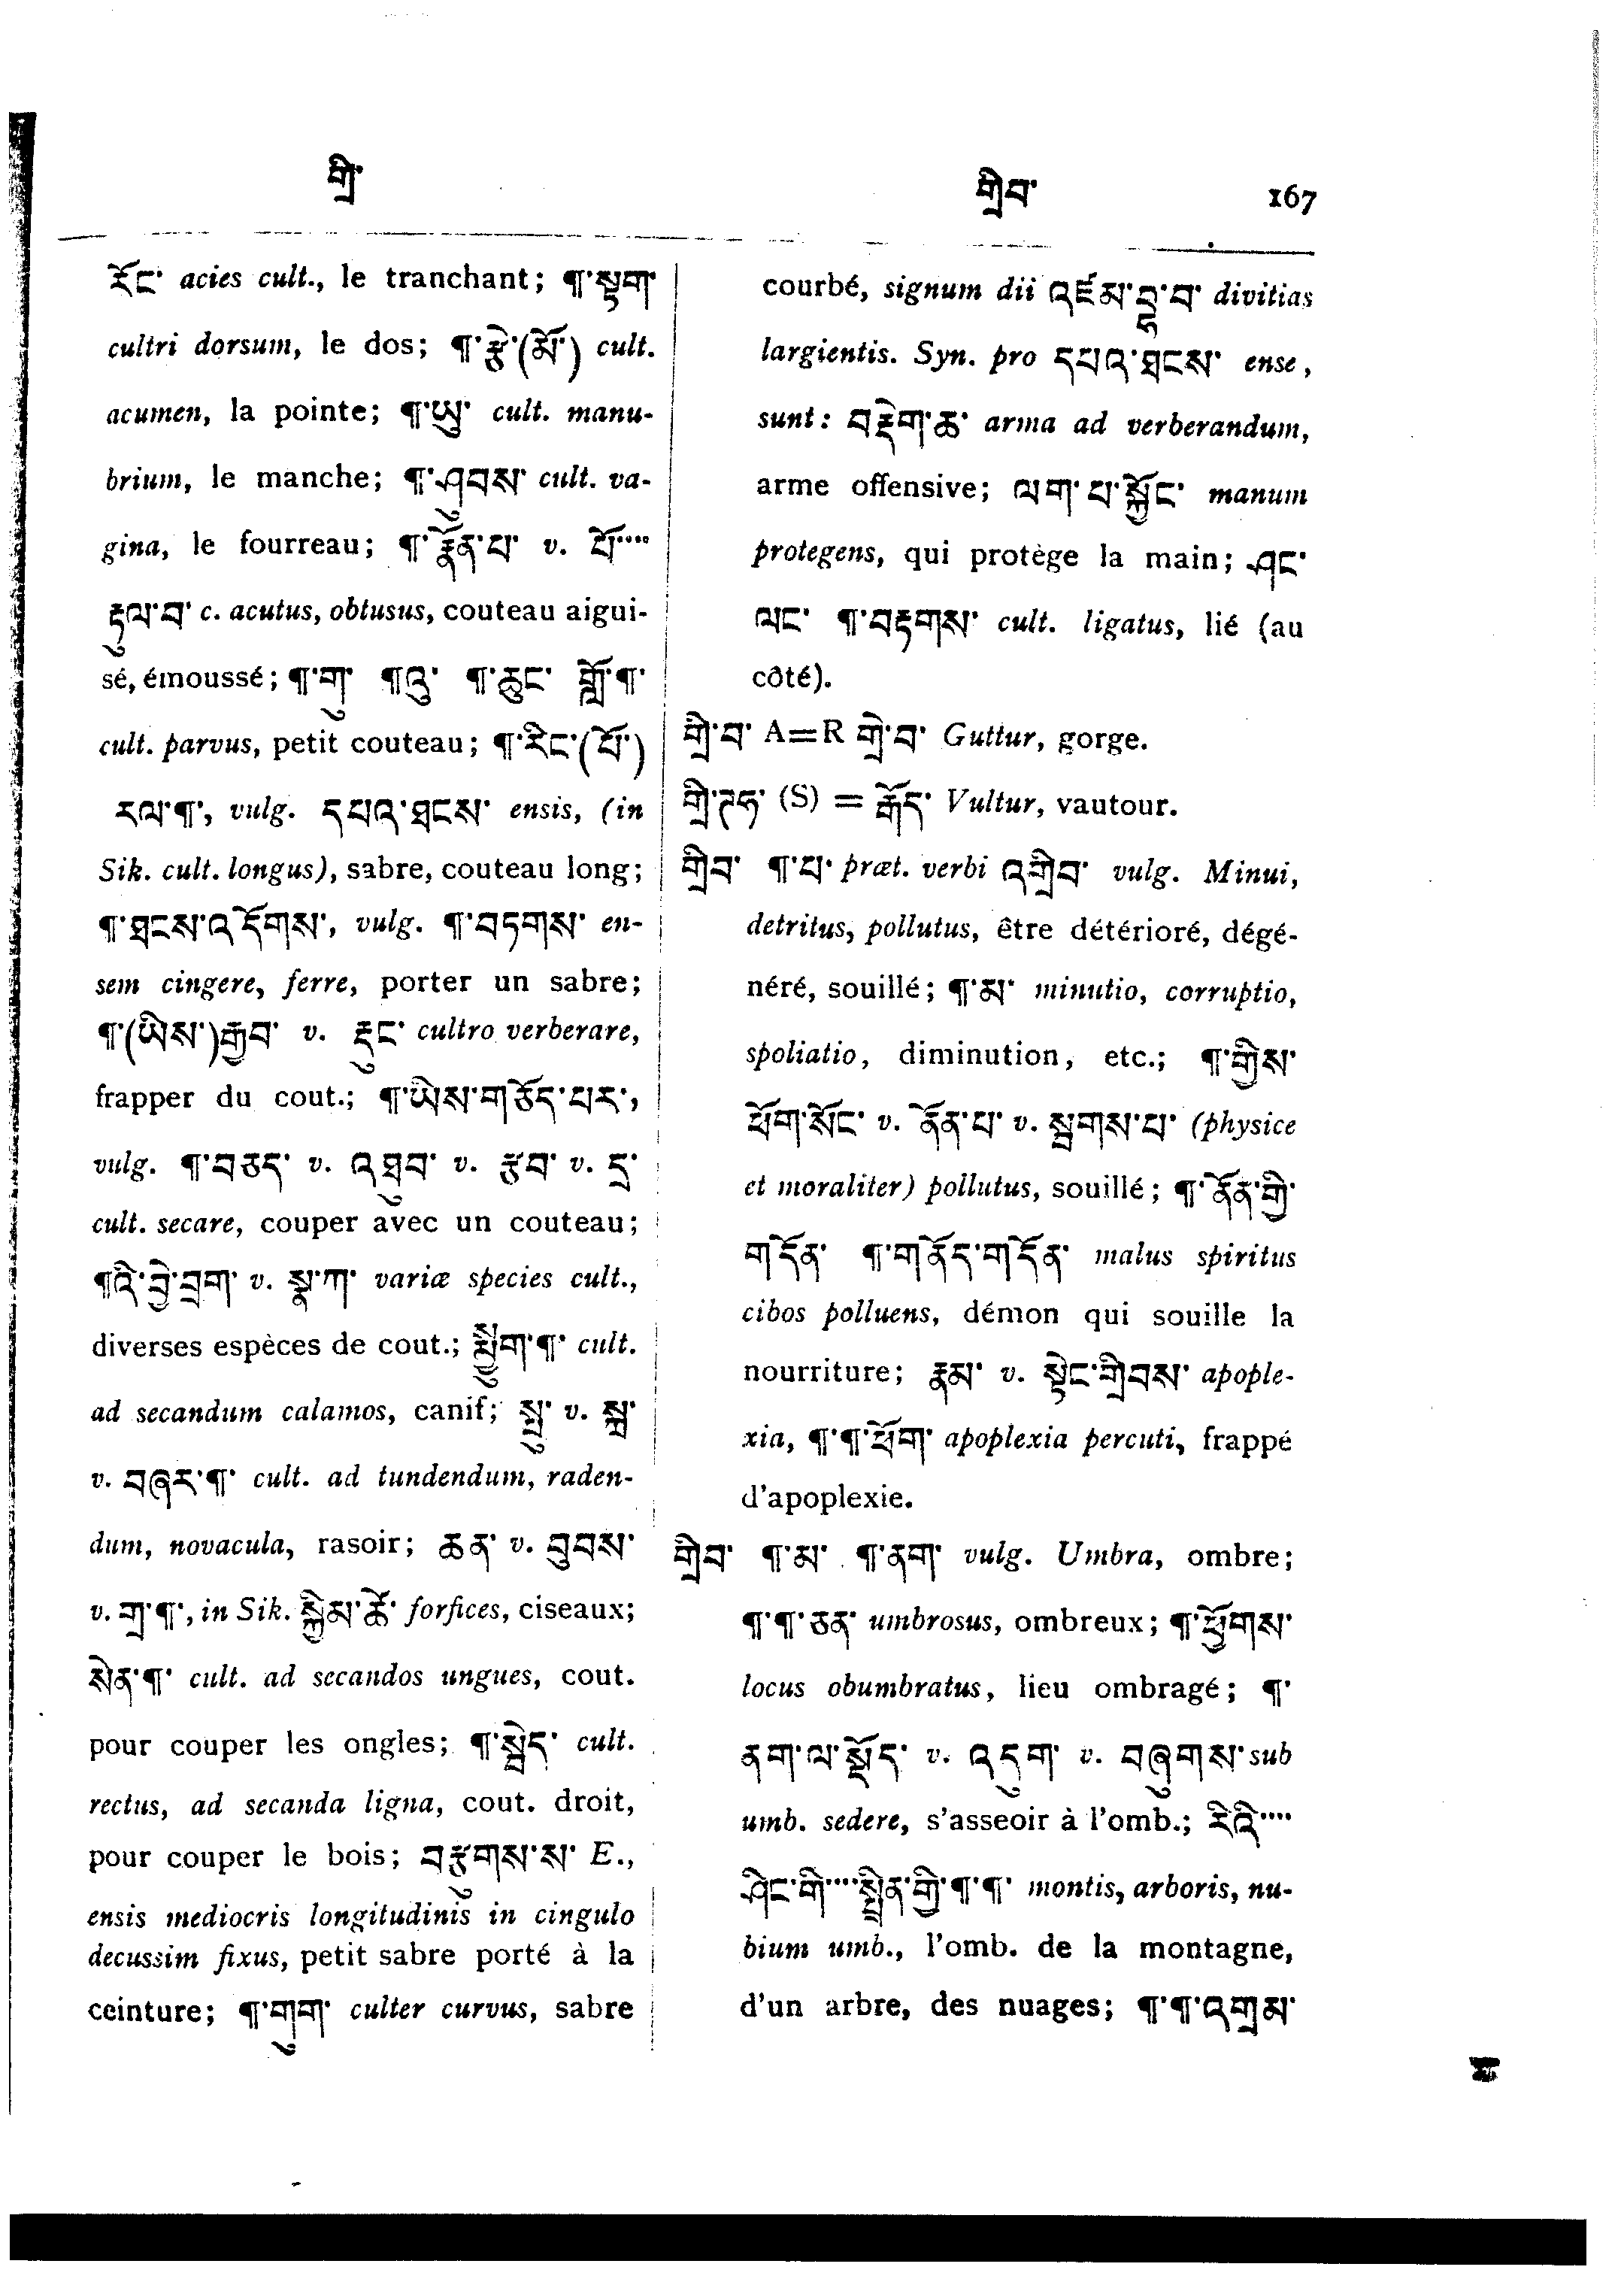 གྲི་
གྲིབ་ 167
རོང་ acies cult., le tranchant; ¶་སྟག་
cultri dorsum, le dos; ¶་རྩེ་(མོ་) cult.
acumen, la pointe; ¶་ཡུ་ cult. manu-
brium, le manche; ¶་ཤུབས་ cult. va-
gina, le fourreau; ¶་རྣོན་པ་ v. པོ་....
རྟུལ་བ་ c. acutus, obtusus, couteau aigui-
sé, émoussé; ¶་གུ་ ¶འུ་ ¶་ཆུང་ གློ་¶་
cult. parvus, petit couteau; ¶་རིང་(པོ་)
རལ་¶་, vulg. དཔའ་ཐངས་ ensis, (in
Sik. cult. longus), sabre, couteau long;
¶་ཐངས་འདོགས་, vulg. ¶་བཏགས་ en-
sem cingere, ferre, porter un sabre;
¶་(ཡིས་)རྒྱབ་ v. རྡུང་ cultro verberare,
frapper du cout.; ¶་ཡིས་གཅོད་པར་,
vulg. ¶་བཅད་ v. འཐུབ་ v. རྩབ་ v. དྲ་
cult. secare, couper avec un couteau;
¶འི་བྱེ་བྲག་ v. སྣ་ཀ་ variæ species cult.,
diverses espèces de cout.; སྨྱུག་¶་ cult.
ad secandum calamos, canif; སྤུ་ v. སྐྲ་
v. བཞར་¶་ cult. ad tundendum, raden-
dum, novacula, rasoir; ཆན་ v. བུབས་
v. གྲ་¶་, in Sik. སྐྱིམ་ཚེ་ forfices, ciseaux;
སེན་¶་ cult. ad secandos ungues, cout.
pour couper les ongles; ¶་སླེད་ cult.
rectus, ad secanda ligna, cout. droit,
pour couper le bois; བརྩུགས་ས་ E.,
ensis mediocris longitudinis in cingulo
decussim fixus, petit sabre porté à la
ceinture; ¶་གུག་ culter curvus, sabre
courbé, signum dii འཛམ་བྷ་བ་ divitias
largientis. Syn. pro དཔའ་ཐངས་ ense,
sunt: བརྡེག་ཆ་ arma ad verberandum,
arme offensive; ལག་པ་སྐྱོང་ manum
protegens, qui protège la main; ཤང་
ལང་ ¶་བརྟགས་ cult. ligatus, lié (au
côté).
གྲི་བ་ A=R གྲེ་བ་ Guttur, gorge.
གྲི་ཌཧ་ (S) = རྒོད་ Vultur, vautour.
གྲིབ་ ¶་པ་ præt. verbi འགྲིབ་ vulg. Minui,
detritus, pollutus, être détérioré, dégé-
néré, souillé; ¶་མ་ minutio, corruptio,
spoliatio, diminution, etc.; ¶་གྱིས་
ཕོག་སོང་ v. ནོན་པ་ v. སླགས་པ་ (physice
et moraliter) pollutus, souillé; ¶་ནོན་གྱི་
གདོན་ ¶་གནོད་གདོན་ malus spiritus
cibos polluens, démon qui souille la
nourriture; རྣམ་ v. སྟེང་གྲིབས་ apople-
xia, ¶་¶་ཕོག་ apoplexia percuti, frappé
d'apoplexie.
གྲིབ་ ¶་མ་ ¶་ནག་ vulg. Umbra, ombre;
¶་¶་ཅན་ umbrosus, ombreux; ¶་ཕྱོགས་
locus obumbratus, lieu ombragé; ¶་
ནག་ལ་སྡོད་ v. འདུག་ v. བཞུགས་ sub
umb. sedere, s'asseoir à l'omb.; རིའི་....
ཤིང་གི་....སྤྲིན་གྱི་¶་¶་ montis, arboris, nu-
bium umb., l'omb. de la montagne,
d'un arbre, des nuages; ¶་¶་འགྲམ་